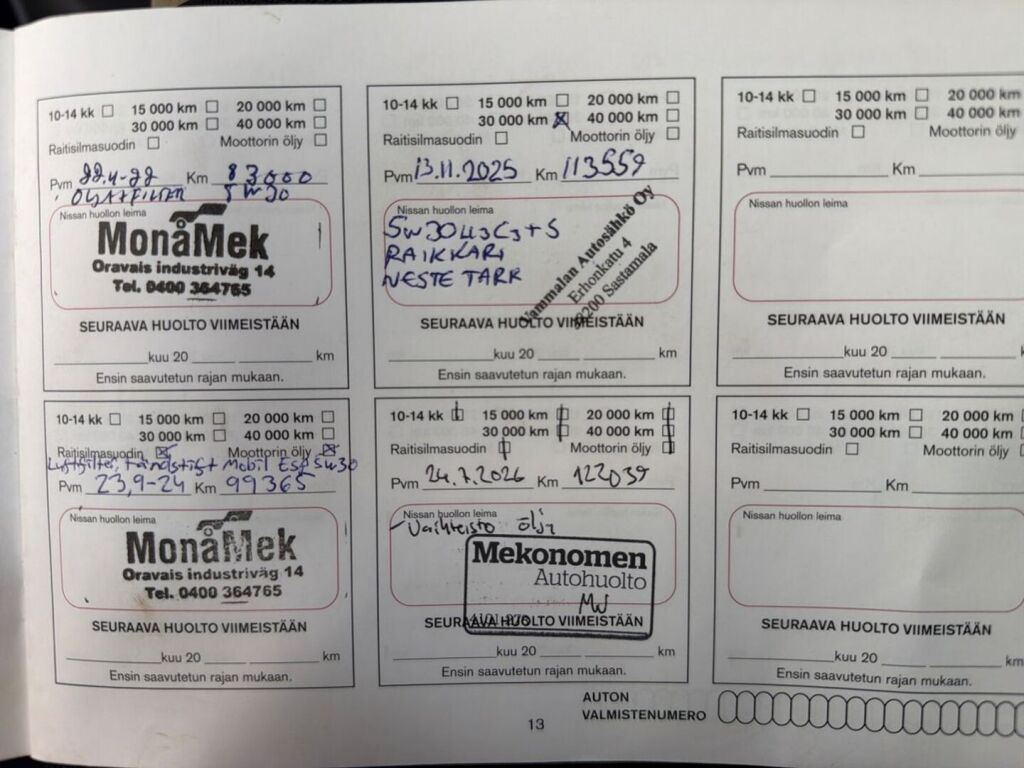 10-14 kk 15 000 km 20 000 km
30 000 km 40 000 km
Raitisilmasuodin Moottorin öljy
Pvm 22.4-22 Km 83000
5W30
Nissan huollon leima
MonåMek
Oravais industriväg 14
Tel. 0400 364765
SEURAAVA HUOLTO VIIMEISTÄÄN
kuu 20 km
Ensin saavutetun rajan mukaan.
10-14 kk 15 000 km 20 000 km
30 000 km 40 000 km
Raitisilmasuodin Moottorin öljy
Luftfilter, Tändstift Mobil ESP 5W30
Pvm 23,9-24 Km 99365
Nissan huollon leima
MonåMek
Oravais industriväg 14
Tel. 0400 364765
SEURAAVA HUOLTO VIIMEISTÄÄN
kuu 20 km
Ensin saavutetun rajan mukaan.
10-14 kk 15 000 km 20 000 km
30 000 km 40 000 km
Raitisilmasuodin Moottorin öljy
Pvm 13.11.2025 Km 113559
Nissan huollon leima
5W30
RAIKKARI
NESTE TARK
Vammalan Autosähkö Oy
Erhonkatu 4
38200 Sastamala
SEURAAVA HUOLTO VIIMEISTÄÄN
kuu 20 km
Ensin saavutetun rajan mukaan.
10-14 kk 15 000 km 20 000 km
30 000 km 40 000 km
Raitisilmasuodin Moottorin öljy
Pvm 24.7.2026 Km 122039
Nissan huollon leima
- Vaihteisto öljy
Mekonomen
Autohuolto
SEURAAVA HUOLTO VIIMEISTÄÄN
kuu 20 km
Ensin saavutetun rajan mukaan.
10-14 kk 15 000 km 20 000 km
30 000 km 40 000 km
Raitisilmasuodin Moottorin öljy
Pvm Km
Nissan huollon leima
SEURAAVA HUOLTO VIIMEISTÄÄN
kuu 20 km
Ensin saavutetun rajan mukaan.
10-14 kk 15 000 km 20 000 km
30 000 km 40 000 km
Raitisilmasuodin Moottorin öljy
Pvm Km
Nissan huollon leima
SEURAAVA HUOLTO VIIMEISTÄÄN
kuu 20 km
Ensin saavutetun rajan mukaan.
AUTON
VALMISTENUMERO
13